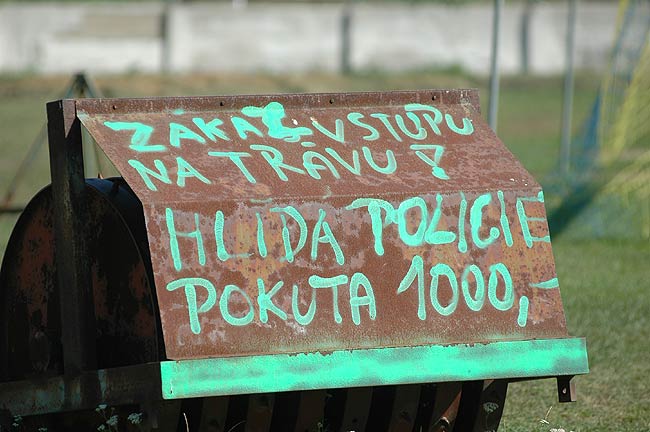 ZÁKAZ VSTUPU
NA TRÁVU!
HLÍDÁ POLICIE
POKUTA 1000,-